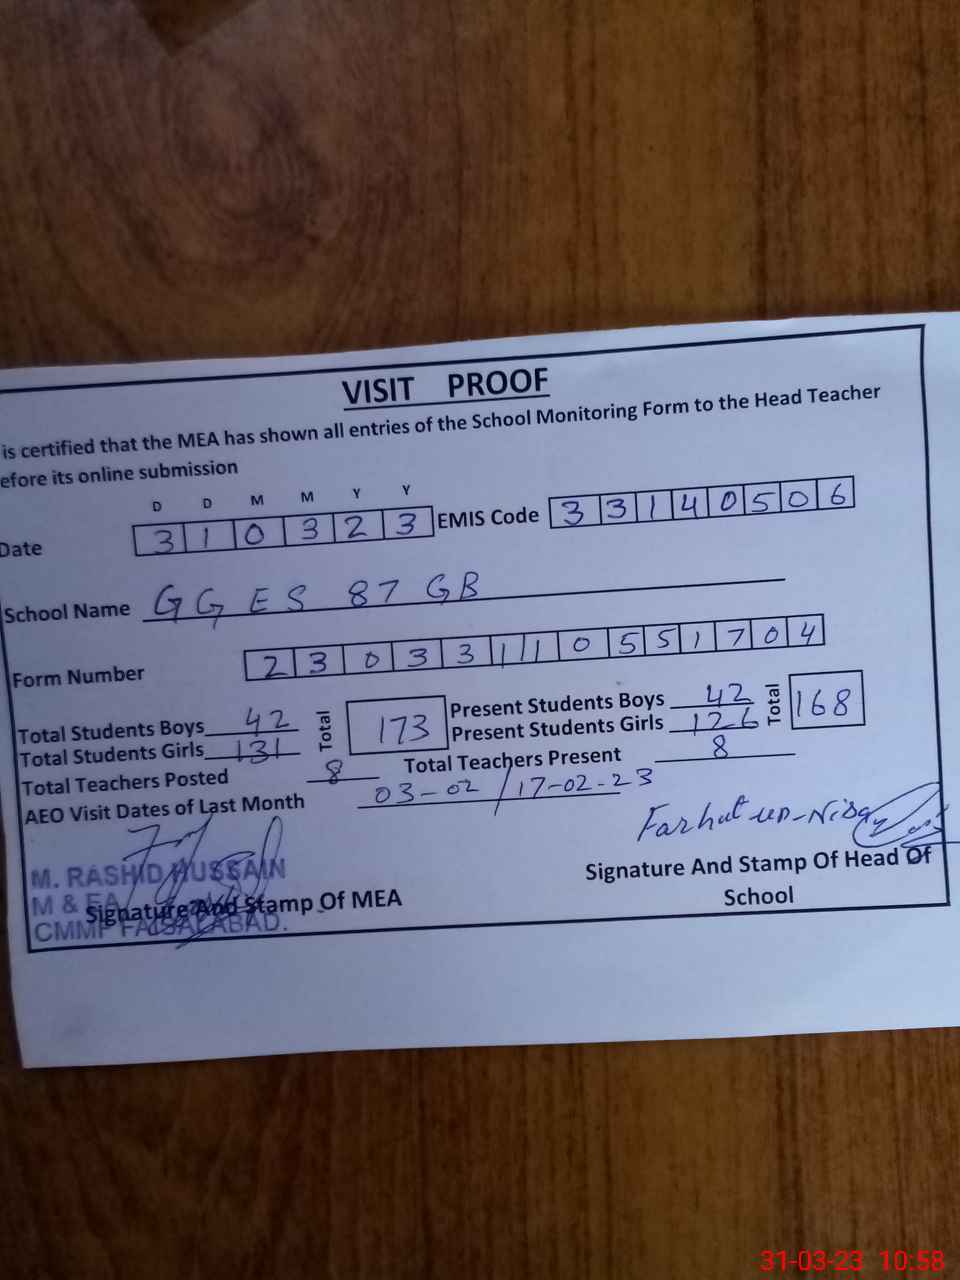 VISIT PROOF
is certified that the MEA has shown all entries of the School Monitoring Form to the Head Teacher
efore its online submission
D D M M Y Y
Date 310323 EMIS Code 33140506
School Name GGES 87 GB
Form Number 23033110551704
Total Students Boys 42 Total 173 Present Students Boys 42 Total 168
Total Students Girls 131 Present Students Girls 126
Total Teachers Posted 8 Total Teachers Present 8
AEO Visit Dates of Last Month 03-02 / 17-02-23
Farhat-un-Nisa
M. RASHID HUSSAIN
M & EA
CMMF FAISALABAD.
Signature And Stamp Of MEA
Signature And Stamp Of Head Of
School
31-03-23 10:58